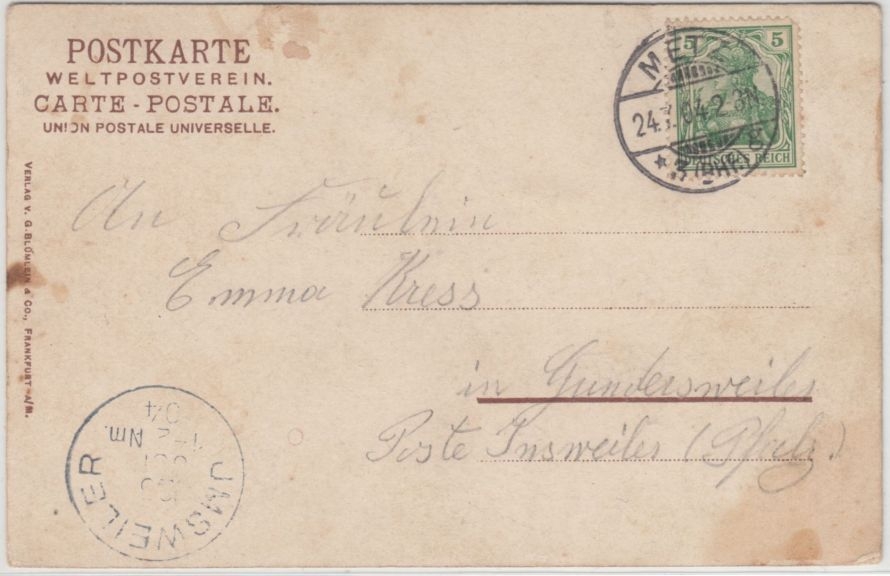 POSTKARTE
WELTPOSTVEREIN.
CARTE-POSTALE.
UNION POSTALE UNIVERSELLE.
5 5
DEUTSCHES REICH
METZ
24. 04. 2-3N
VERLAG V. G. BLÜMLEIN & CO., FRANKFURT A/M.
An Fräulein
Emma Kress
in Gundersweiler
Poste Imsweiler (Pfalz.)
JMSWEILER
Nm.
04